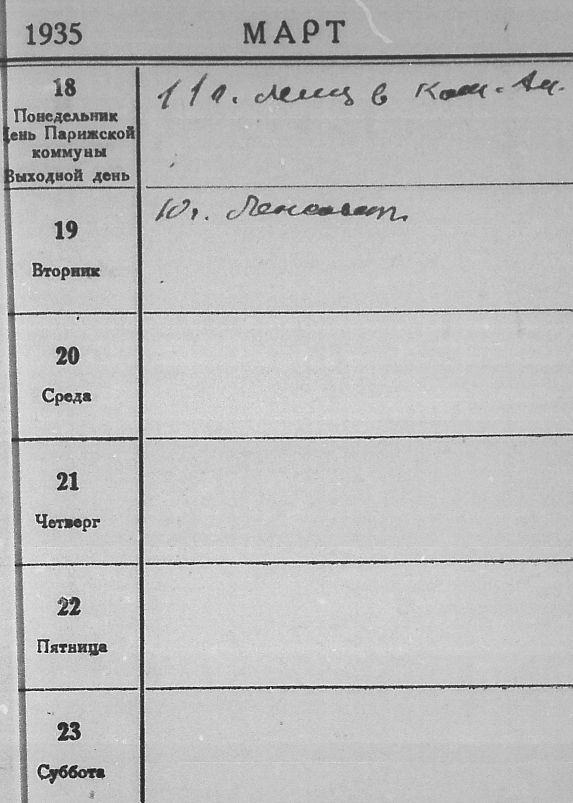 1935 МАРТ
18
Понедельник
День Парижской
коммуны
Выходной день
11 в Ком. Ак.
19
Вторник
10 г.
20
Среда
21
Четверг
22
Пятница
23
Суббота